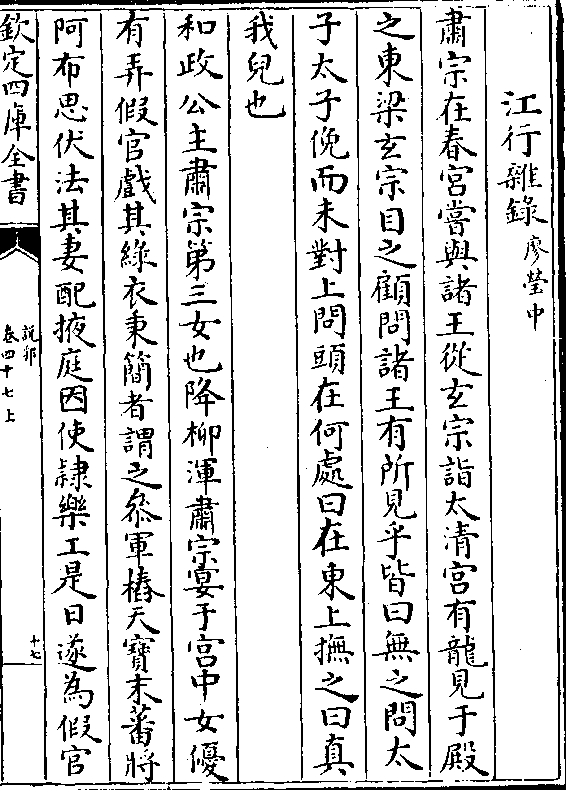 江行雜錄廖瑩中
肅宗在春宮嘗與諸王從玄宗詣太清宮有龍見于殿
之東梁玄宗目之顧問諸王有所見乎皆曰無之問太
子太子俛而未對上問頭在何處曰在東上撫之曰真
我兒也
和政公主肅宗第三女也降柳渾肅宗宴于宮中女優
有弄假官戲其綠衣秉簡者謂之叅軍樁天寶末蕃將
阿布思伏法其妻配掖庭因使隷樂工是日遂為假官
欽定四庫全書
說郛
卷四十七上
十七